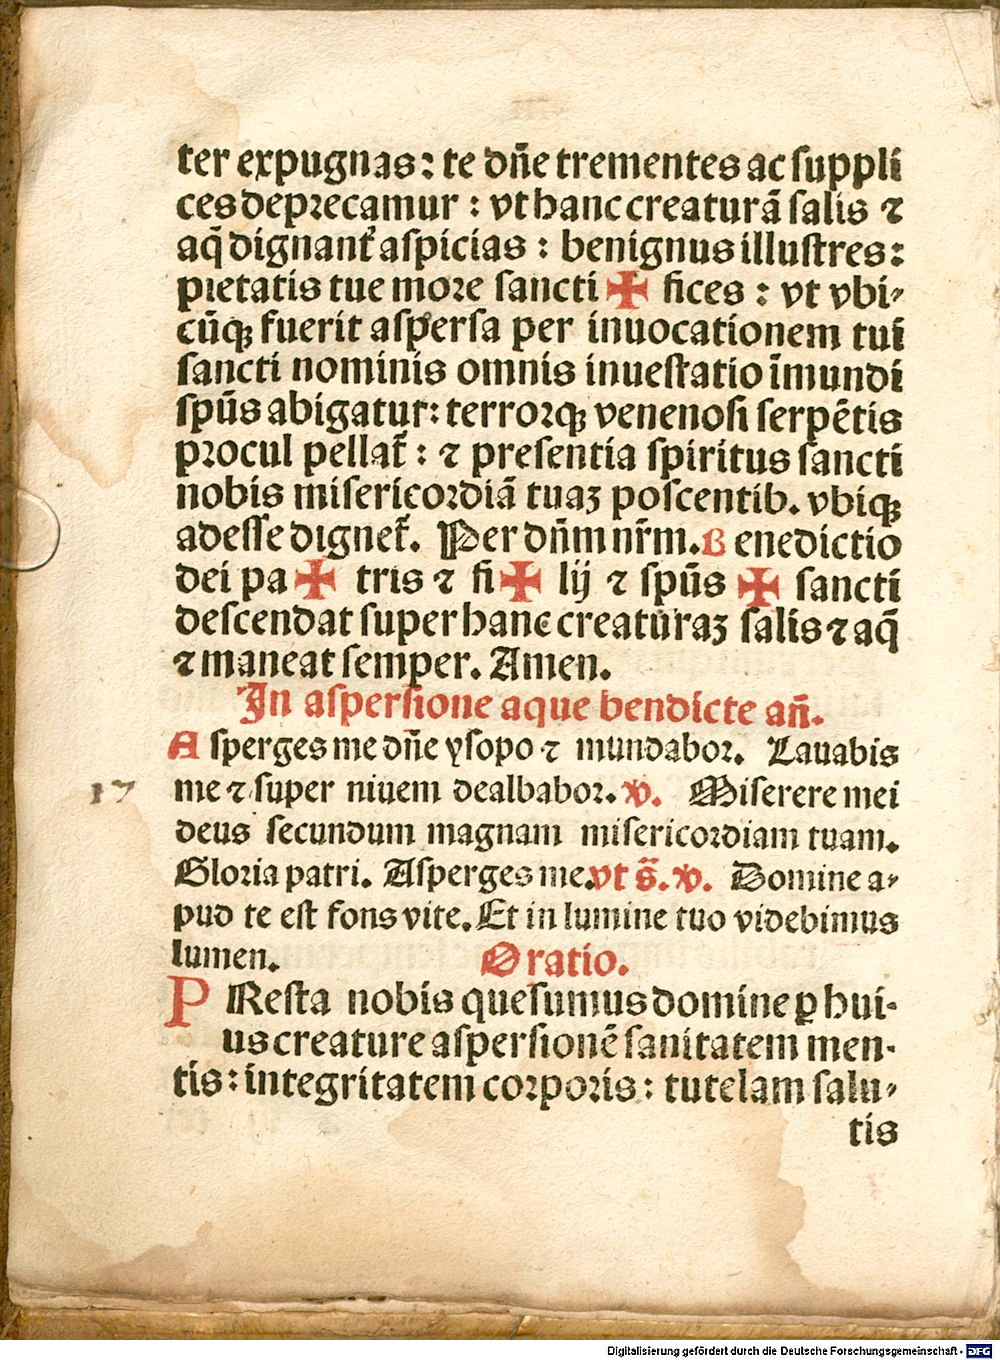 ter expugnas: te dñe trementes ac suppli
ces deprecamur : vt hanc creaturã salis ⁊
aq̃ dignant᷑ aspicias : benignus illustres:
pietatis tue more sancti ✠ fices : vt vbi⸗
cũqꝫ fuerit aspersa per inuocationem tui
sancti nominis omnis inuestatio ĩmundi
spũs abigatur: terrorqꝫ venenosi serpẽtis
procul pellat᷑ : ⁊ presentia spiritus sancti
nobis misericordiã tuaꝫ poscentib. vbiqꝫ
adesse dignet᷑. Per dñm nr̃m. Benedictio
dei pa ✠ tris ⁊ fi ✠ lij ⁊ spũs ✠ sancti
descendat super hanc creaturaꝫ salis ⁊ aq̃
⁊ maneat semper. Amen.
In aspersione aque bendicte añ.
Asperges me dñe ysopo ⁊ mundabor. Lauabis
17
me ⁊ super niuem dealbabor. ℣. Miserere mei
deus secundum magnam misericordiam tuam.
Gloria patri. Asperges me. vt s̃. ℣. Domine a⸗
pud te est fons vite. Et in lumine tuo videbimus
lumen. Oratio.
PResta nobis quesumus domine ꝑ hui-
us creature aspersionẽ sanitatem men-
tis: integritatem corporis: tutelam salu⸗
tis
Digitalisierung gefördert durch die Deutsche Forschungsgemeinschaft - DFG